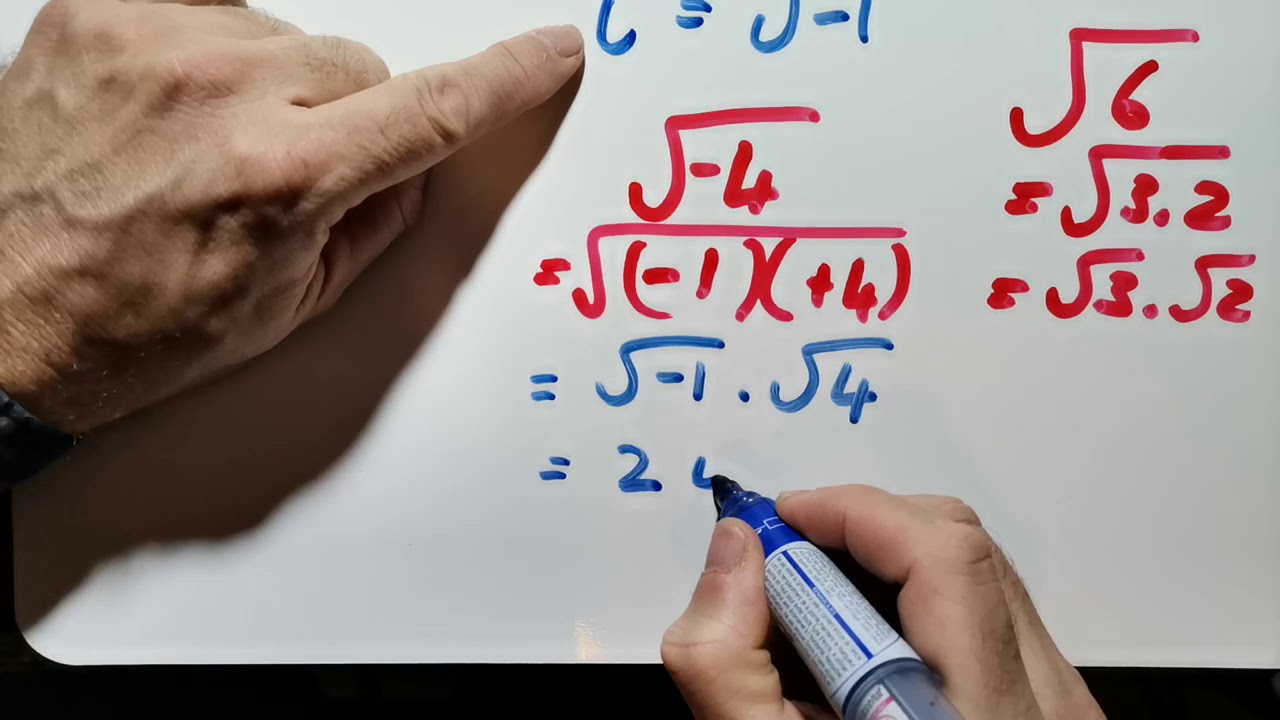 i = √-1
√-4
= √(-1)(+4)
= √-1 . √4
= 2 i
√6
= √3.2
= √3 . √2